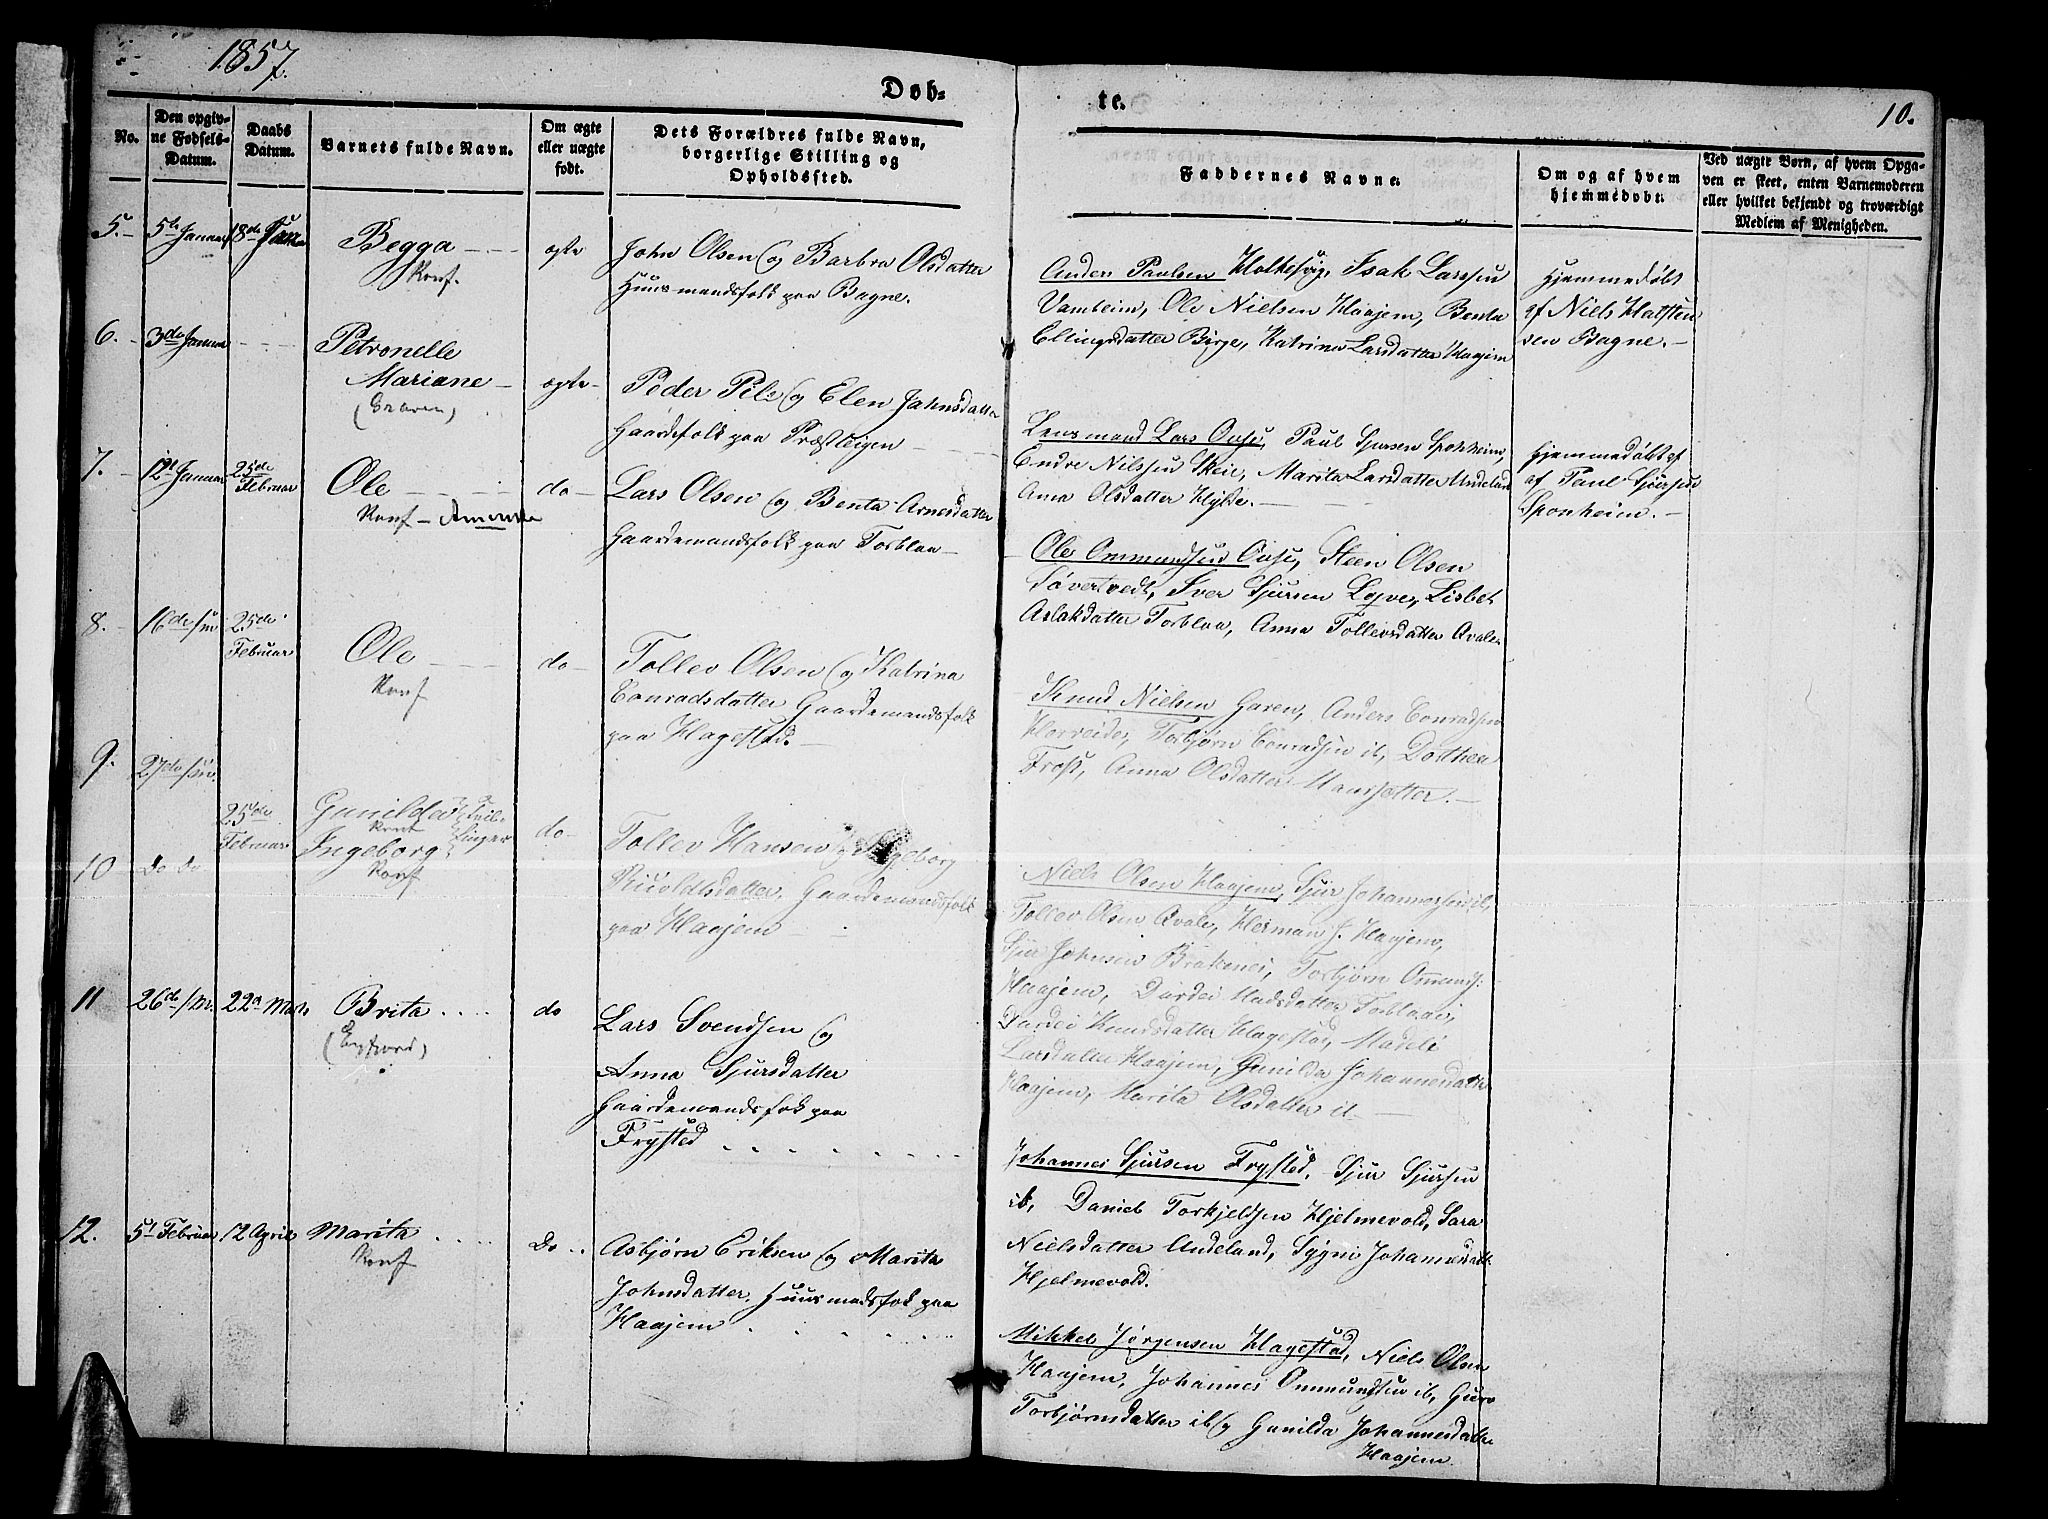 1857.
Døb-
te.
10.
No.
Den opgiv-
ne Fødsels-
Datum.
Daabs
Datum.
Barnets fulde Navn.
Om ægte
eller uægte
født.
Dets Forældres fulde Navn,
borgerlige Stilling og
Opholdssted.
Faddernes Navne.
Om og af hvem
hjemmedøbt.
Ved uægte Børn, af hvem Opga-
ven er skeet, enten Barnemoderen
eller hvilket bekjendt og troværdigt
Medlem af Menigheden.
5. 5te Januar 18de Januar
Begga
Konf.
ægte
John Olsen og Barbra Olsdatter
Huusmandsfolk paa Bagne.
Anders Paulsen Holkesøg, Isak Larssen
Vambeim, Ole Nielsen Haajem, Benta
Ellingsdatter Børge, Katrina Larsdatter Haajem
Hjemmedøbt
af Niels Halsten
sen Bagne.
6. 3de Januar
Petronelle
Mariane
(Graven)
ægte
Peder Pilz og Elen Jahnsdatter
Gaardefolk paa Præsteigen
Lensmand Lars Opse, Paul Sjursen Sponheim,
Endre Nilssen Skeie, Marita Larsdatter Undeland
Anna Olsdatter Hylde.
Hjemmedøbt af
af Paul Sjursen
Sponheim.
7. 12t Januar 25de
Februar
Ole
Konf - Amerika
do
Lars Olsen og Benta Arnesdatter
Gaardemandsfolk paa Torblaa
Ole Ommundsen Opse, Steen Olsen
Tøvertvedt, Iver Sjursen Legve, Lisbet
Aslakdatter Torblaa, Anna Tollevsdatter Qvale.
8. 16de /m 25de
Februar
Ole
Konf
do
Tollev Olsen og Katrina
Conradsdatter Gaardemandsfolk
paa Hagestad.
Knud Nielsen Garen, Anders Conradsen
Herreide, Torbjørn Conradsen ib, Dorthea
Frost, Anna Olsdatter Maursætter.
9. 27de /m. 25de
Februar
Gunilda
Konf
Tvil-
linger
Ingeborg
Konf
10 do do
do
Tollev Hansen og Ingeborg
Gaardemandsfolk
paa Haajem
Niels Olsen Haajem, Sjur Johannessen ib,
Tollev Olsen Qvale, Herman J. Haajem,
Sjur Johnsen Brakenes, Torbjørn Ommunds:
Haajem, Durdei Madsdatter Torblaa,
Durdei Knudsdatter Hagestad, Madeli
Larsdatter Haajem, Gunilda Johannesdatter
Haajem, Marita Olsdatter ib
11 26de /m. 22d Marts
Brita
(Eyfjord)
do
Lars Svendsen og
Anna Sjursdatter
Gaardemandsfolk paa
Trysted
Johannes Sjursen Trysted, Sjur Sjursen
ib, Daniel Torkjeldsen Hjelmevold, Sara
Nielsdatter Undeland, Sygni Johannesdatter
Hjelmevold.
12. 5t Februar 12 April
Marita
Konf
Do
Asbjørn Eriksen og Marita
Johnsdatter. Huusmandsfolk paa
Haajem
Mikkel Jørgensen Hagestad, Niels Olsen
Haajem, Johannes Ommundsen ib, Guro
Torbjørnsdatter ib og Gunilda Johannesdatter
Haajem